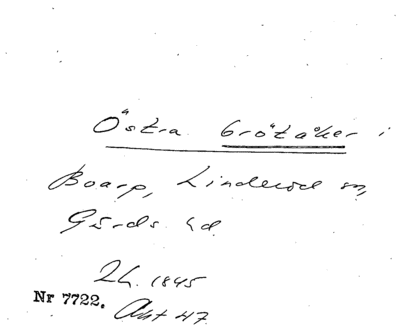 Östra Grötåker i
Boarp, Linderöd sn,
Gärds hd
Lh. 1845
Nr 7722. Akt 47